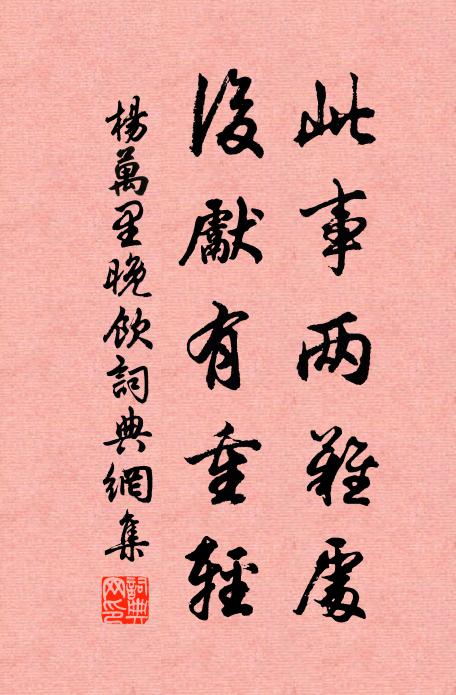 此事两難處
後獻有重輕
楊萬里晚飲詞典網集
詞典网印